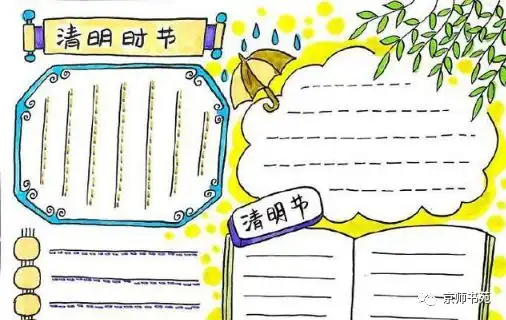 清明时节
清明节
京师书苑